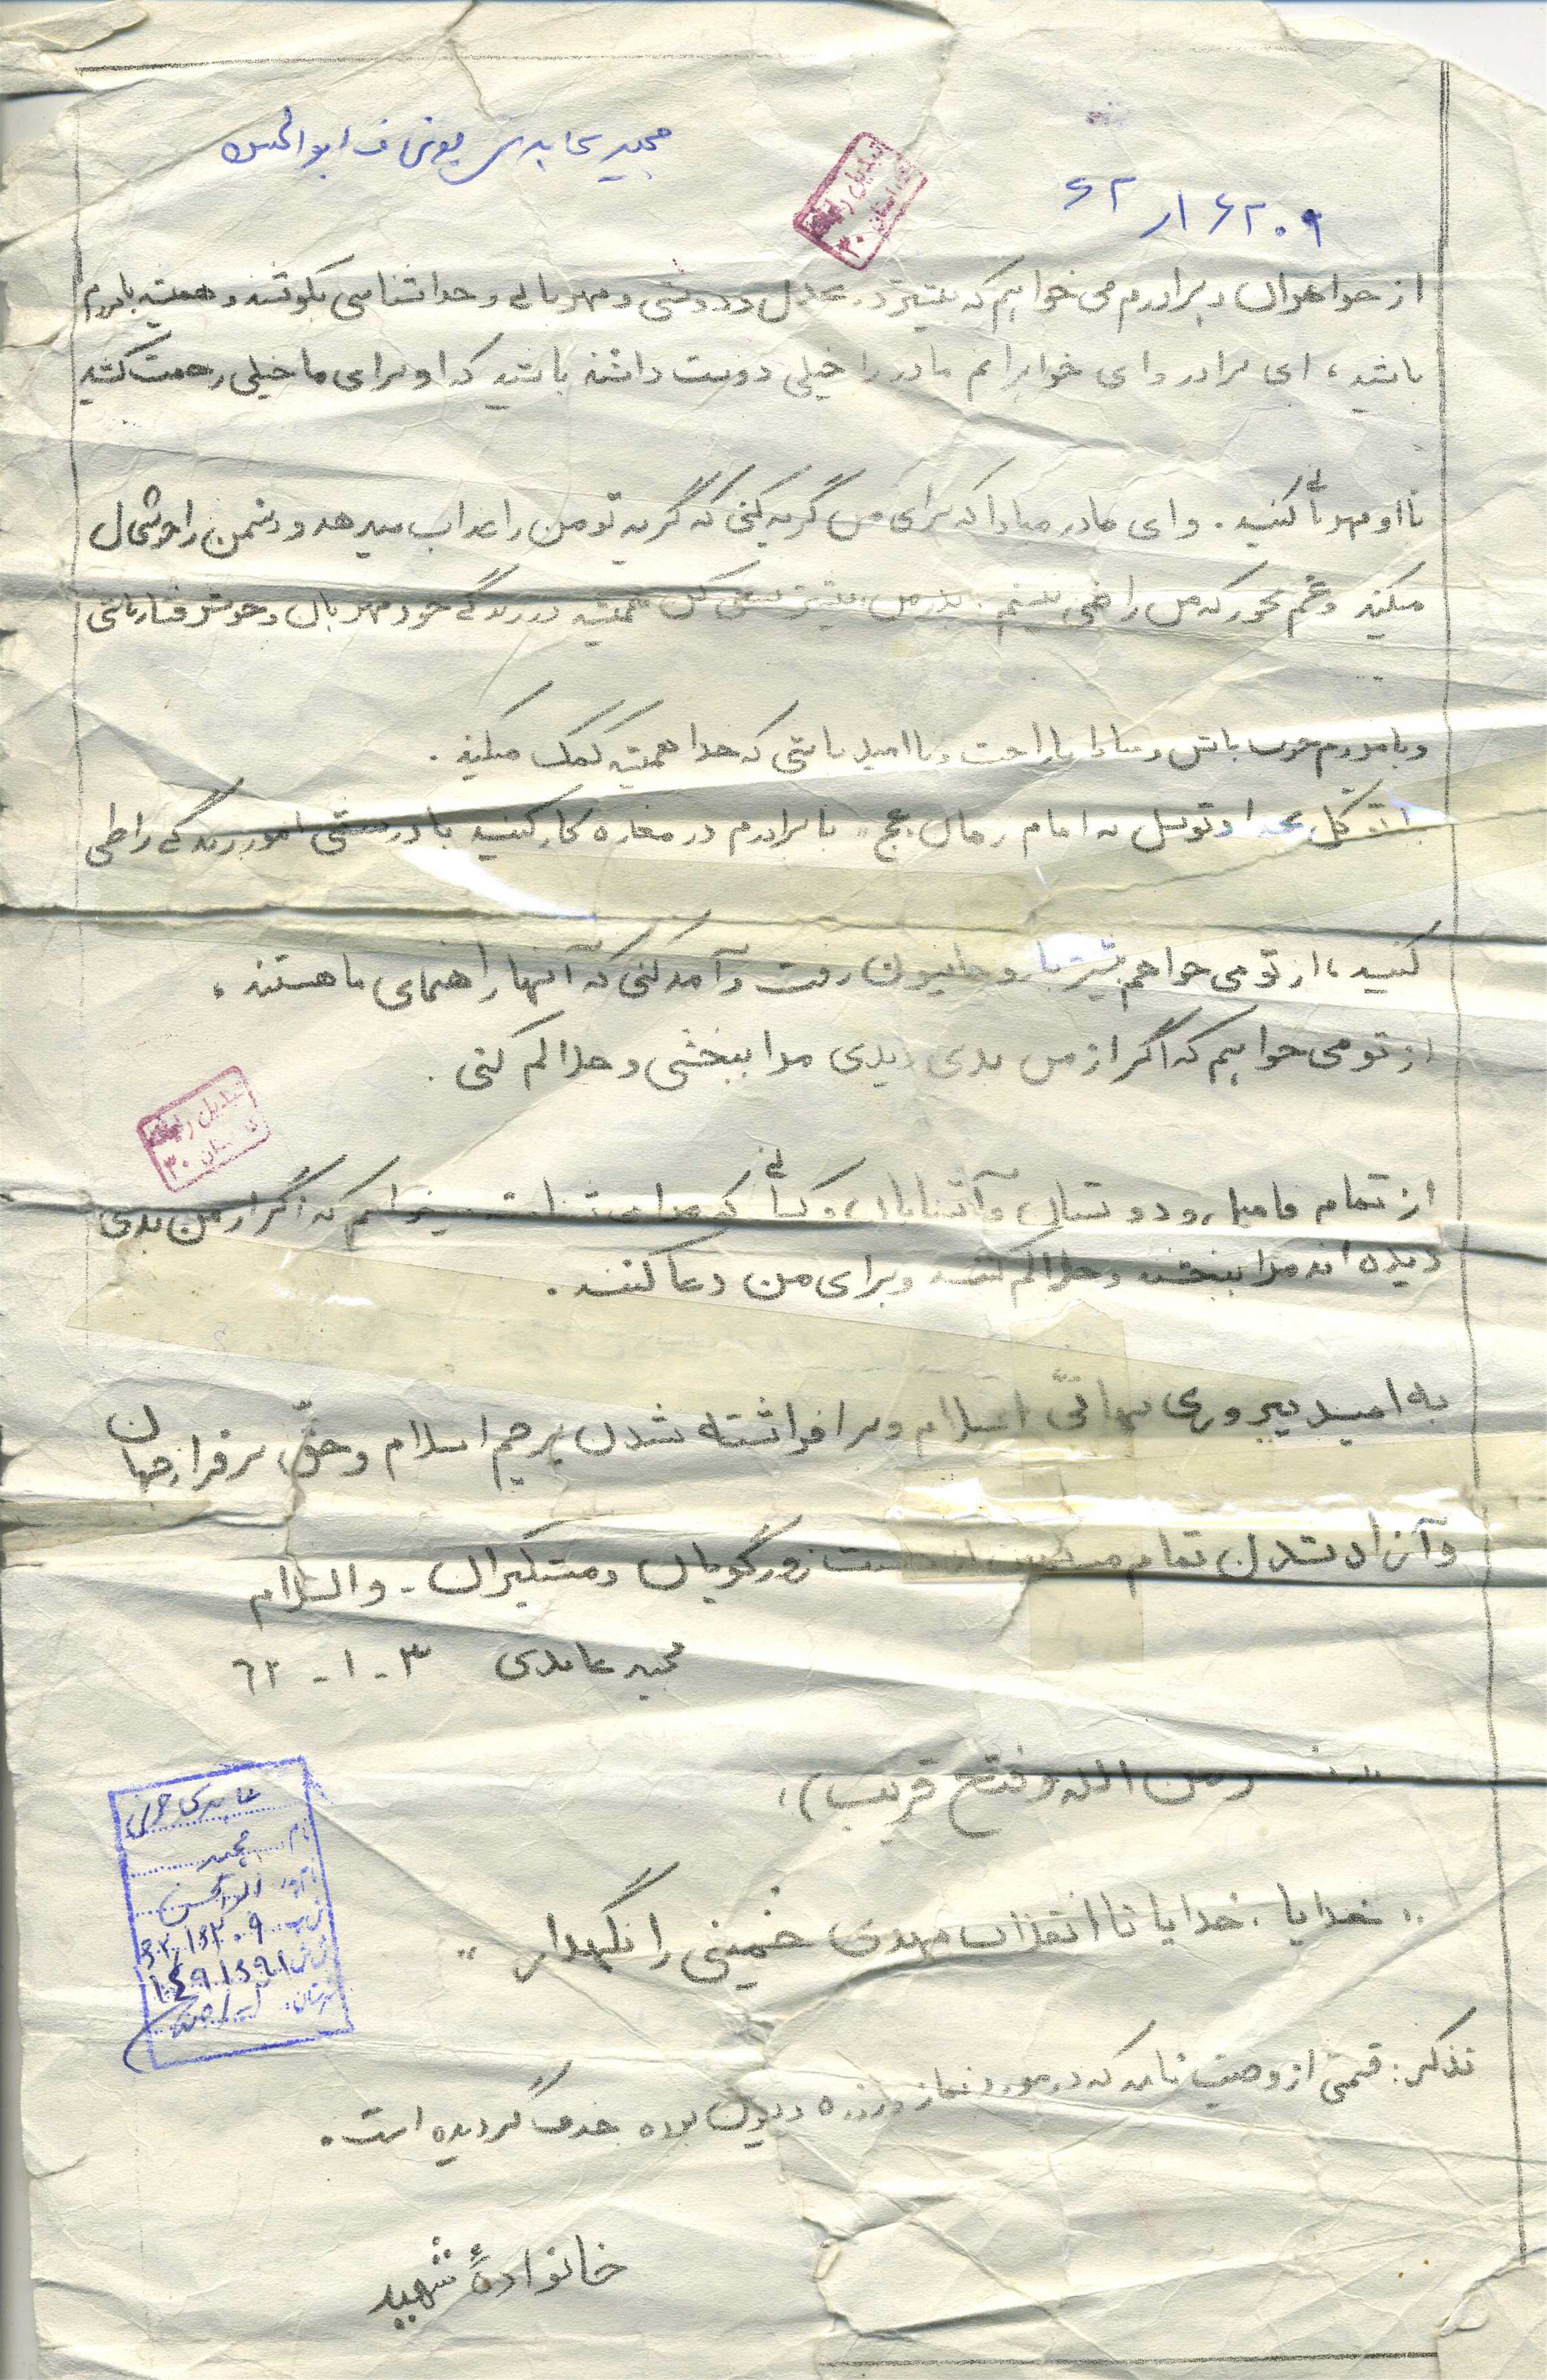 مجید عابدی ف ابوالحسن
۶۲ ار ۶۲۰۹
تبدیل
۳۰
از خواهران و برادرم می خواهم که بیشتر در عدل و دوستی و مهربانی و خداشناسی بکوشند و همیشه با مردم
باشید، ای برادر و ای خواهرانم مادر را خیلی دوست داشته باشید که او برای ما خیلی زحمت کشید
با او مهربانی کنید. و ای مادر مبادا که برای من گریه کنی که گریه تو من را عذاب میدهد و دشمن را خوشحال
میکند و غم نخور که من راضی نیستم. پدر من بیشتر سعی کن همیشه در زندگی خود مهربان و خوش رفتار باشی
و با مردم خوب باش و مبادا ناراحت و ناامید باشی که خدا همیشه کمک میکند.
با توکل بخدا و توسل به امام زمان عج با برادرم در مغازه کار کنید با درستی امور زندگی را طی
کنید، از تو می خواهم بیشتر با روحانیون رفت و آمد کنی که آنها راهنمای ما هستند.
از تو می خواهم که اگر از من بدی دیدی مرا ببخشی و حلالم کنی.
تبدیل
۳۰
از تمام فامیل و دوستان و آشنایان و کسانی که مرا می میخواهم که اگر از من بدی
دیده اند مرا ببخشند و حلالم کنند و برای من دعا کنند.
به امید پیروزی نهائی اسلام و برافراشته شدن پرچم اسلام و حق بر فراز جهان
و آزاد شدن تمام مسلمین از دست زورگویان و مستکبران - والسلام
مجید عابدی ۳-۱-۶۲
من الله و فتح قریب)
" خدایا، خدایا تا انقلاب مهدی خمینی را نگهدار "
عابدی
نام مجید
ابوالحسن
۶۲۰۹
شهرستان
تذکر: قسمتی از وصیت نامه که در مورد نماز و روزه و دیون بوده حذف گردیده است.
خانوادهٔ شهید